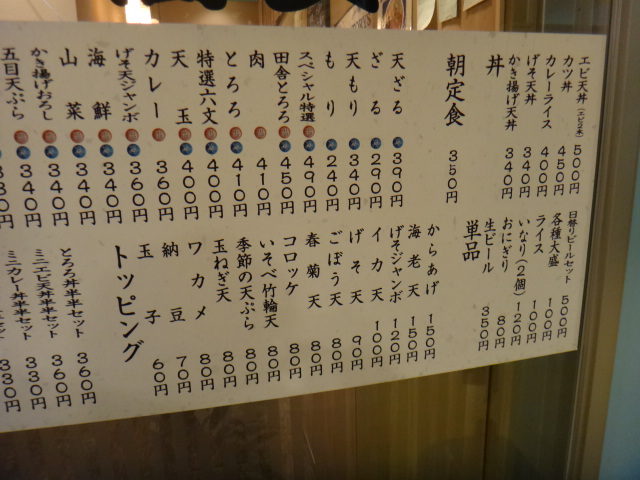 エビ天丼(エビ2本) 500円
カツ丼 450円
カレーライス 400円
げそ天丼 340円
かき揚げ天丼 340円
丼
朝定食 350円
天ざる 390円
ざる 290円
天もり 340円
もり 240円
スペシャル特選 490円
田舎とろろ 450円
肉 410円
とろろ 410円
特選六文 400円
天玉 400円
カレー 360円
げそ天ジャンボ 360円
海鮮 340円
山菜 340円
かき揚げおろし 340円
五目天ぷら
日替りビールセット 500円
各種大盛 100円
ライス 100円
いなり(2個) 120円
おにぎり 80円
生ビール 350円
単品
からあげ 150円
海老天 150円
げそジャンボ 120円
イカ天 100円
げそ天 90円
ごぼう天 80円
春菊天 80円
コロッケ 80円
いそべ竹輪天 80円
季節の天ぷら 80円
玉ねぎ天 80円
ワカメ 80円
納豆 70円
玉子 60円
トッピング
とろろ丼半半セット 360円
ミニエビ天丼半半セット 360円
ミニカレー丼半半セット 330円
330円